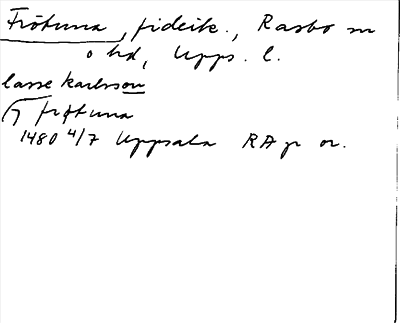 Frötuna, fideik., Rasbo sn
o hd, Upps. l.
lasse karlsson
j frøtuna
1480 4/7 Uppsala RA p or.